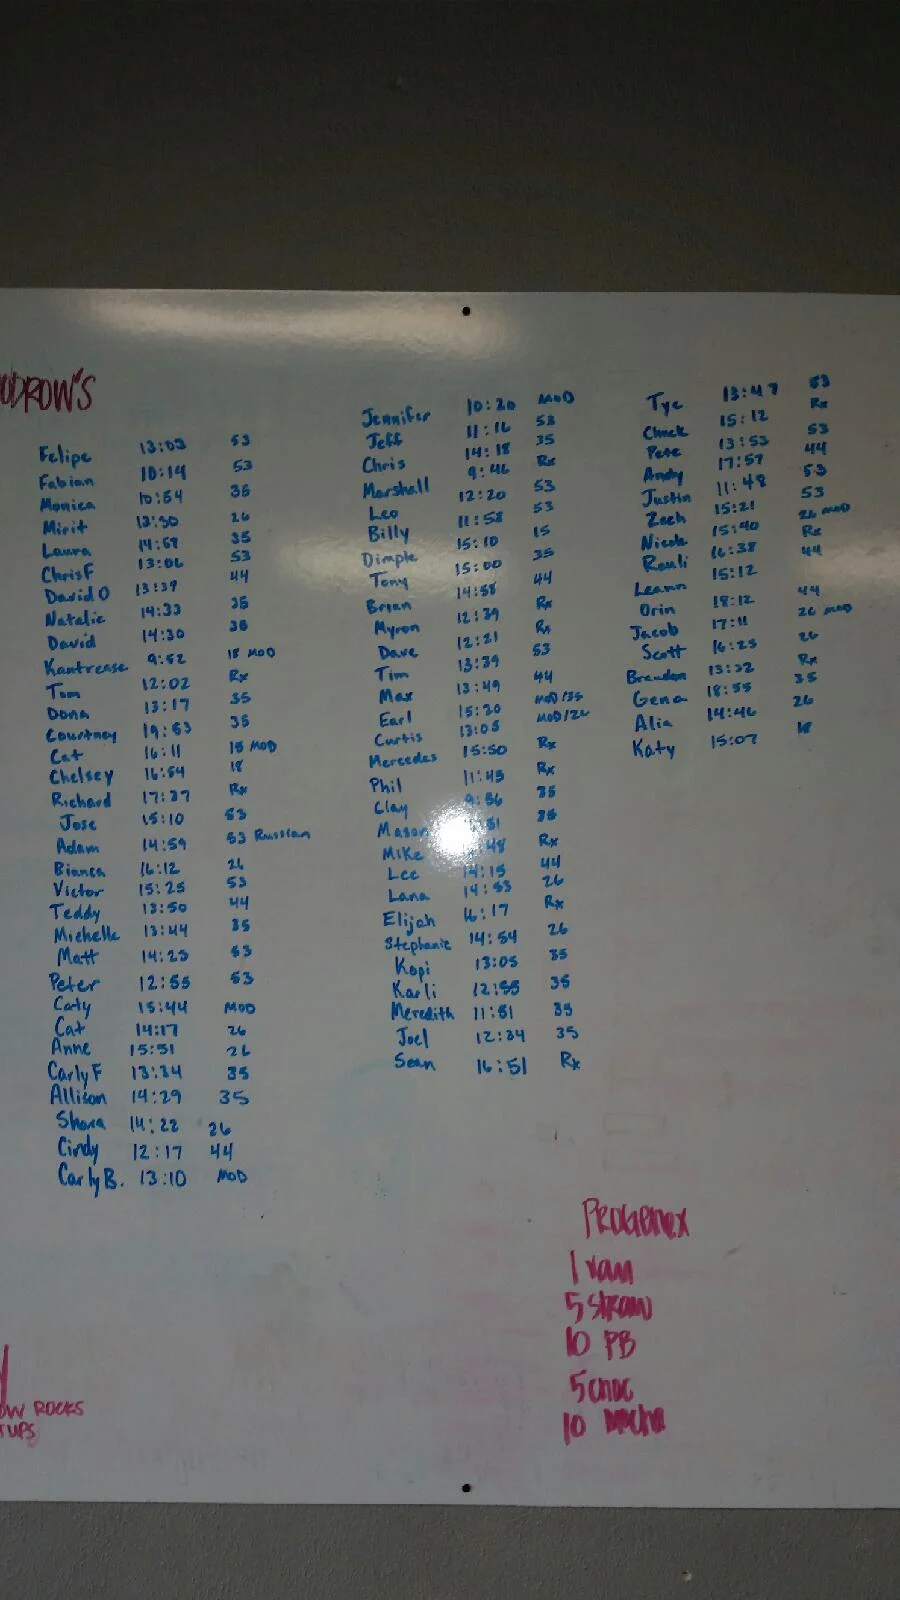 UDROW'S
Felipe 13:03 53
Fabian 10:14 53
Monica 10:54 35
Mirit 13:30 26
Laura 14:59 35
Chris F 13:06 53
David O 13:39 44
Natalie 14:33 35
David 14:30 35
Kantrease 9:52 18 MOD
Tom 12:02 Rx
Dona 13:17 35
Courtney 19:53 35
Cat 16:11 15 MOD
Chelsey 16:54 18
Richard 17:37 Rx
Jose 15:10 53
Adam 14:59 53 Russian
Bianca 16:12 26
Victor 15:25 53
Teddy 13:50 44
Michelle 13:44 35
Matt 14:23 53
Peter 12:55 53
Caty 15:44 MOD
Cat 14:17 26
Anne 15:51 26
Carly F 13:34 35
Allison 14:29 35
Shana 14:22 26
Cindy 12:17 44
Carly B. 13:10 MOD
Jennifer 10:20 MOD
Jeff 11:16 53
Chris 14:18 35
Marshall 9:46 Rx
Leo 12:20 53
Billy 11:58 53
Dimple 15:10 15
Tony 15:00 35
Brian 14:58 44
Myron 12:39 Rx
Dave 12:21 Rx
Tim 13:39 53
Max 13:49 44
Earl 15:20 MOD/35
Curtis 13:05 MOD/26
Mercedes 15:50 Rx
Phil 11:45 Rx
Clay 9:56 35
Mason 35
Mike Rx
Lee 14:15 44
Lana 14:53 26
Elijah 16:17 Rx
Stephanie 14:54 26
Kopi 13:05 35
Karli 12:55 35
Meredith 11:51 35
Joel 12:34 35
Sean 16:51 Rx
Tye 13:47 53
Chuck 15:12 Rx
Pete 13:53 53
Andy 17:57 44
Justin 11:48 53
Zach 15:21 53
Nicole 15:40 26 MOD
Rauli 16:38 Rx
Leann 15:12 44
Orin 18:12 44
Jacob 17:11 26 MOD
Scott 16:23 26
Brandon 13:32 Rx
Gena 18:55 35
Alia 14:46 26
Katy 15:07 18
PROGENEX
1 VAN
5 STRAW
10 PB
5 CHOC
10 MOCHA
OW ROCKS
TUPS